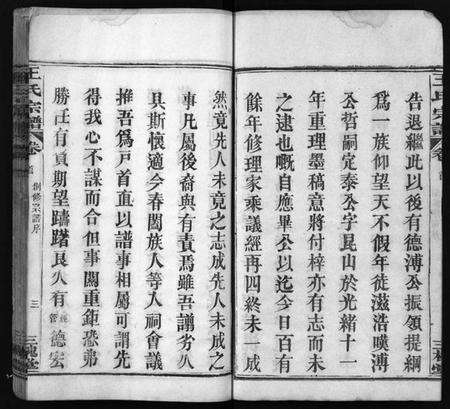 告退繼此以後有德溥公振領提綱
為一族仰望天不假年徒滋浩嘆溥
公哲嗣定泰公字昆山於光緒十一
年重理墨稿意將付梓亦有志而未
之逮也嘅自應畢公以迄今日百有
餘年修理家乘議經再四終未一成
王氏宗譜
卷首
創修宗譜序
三
三槐堂
然竟先人未竟之志成先人未成之
事凡屬後裔與有責焉雖吾譾劣久
具斯懷適今春闔族人等入祠會議
推吾為戶首直以譜事相屬可謂先
得我心不謀而合但事關重鉅恐弗
勝任有負期望躊躇良久有德宏